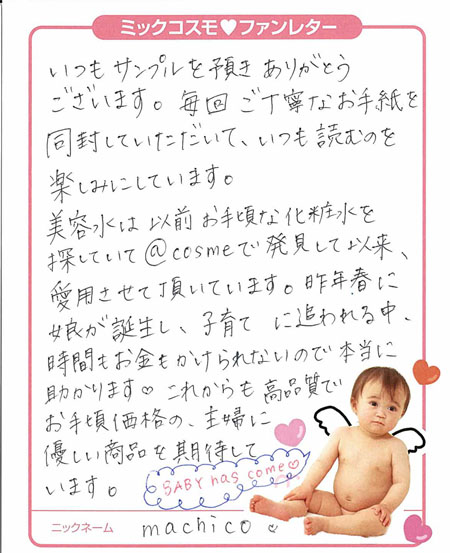 ミックコスモ♥ファンレター
いつもサンプルを預きありがとう
ございます。毎回ご丁寧なお手紙を
同封していただいて、いつも読むのを
楽しみにしています。
美容水は以前お手頃な化粧水を
探していて@cosmeで発見して以来、
愛用させて頂いています。昨年春に
娘が誕生し、子育てに追われる中、
時間もお金もかけられないので本当に
助かります♡これからも高品質で
お手頃価格の、主婦に
優しい商品を期待して
います。
BABY has come♡
ニックネーム machico